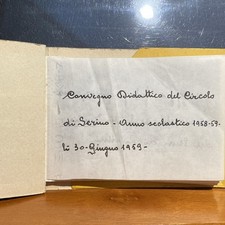 Convegno Didattico del Circolo
di Serino - Anno scolastico 1958-59-
lì 30- Giugno 1959-